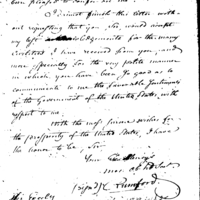 been pleased to confer on me.
I cannot finish this letter with-
out requesting that you, Sir, would accept
my best acknowledgements for the many
civilities I have received from you, and
more especially for the very polite manner
in which you have been so good as to
communicate to me the favorable sentiments
of the Government of the United States, with
respect to me.
With the most sincere wishes for
the prosperity of the United States, I have
the honor to be, Sir,
Your Excellency's
most obedient
(signed) Rumford